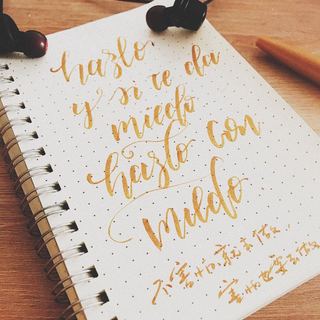 hazlo,
y si te da
miedo
hazlo con
miedo
不害怕就去做，
害怕也要去做